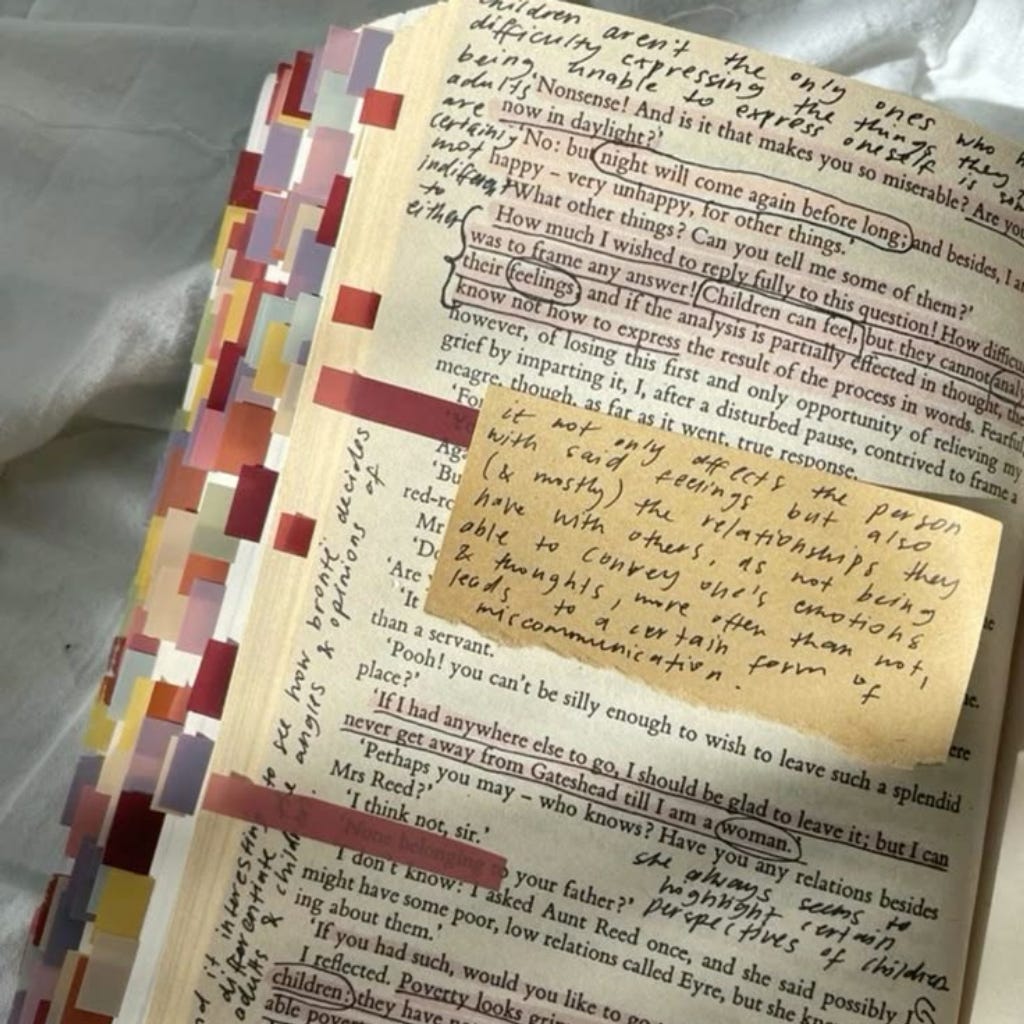 children aren't the only ones who
difficulty expressing the things they
being unable to express oneself is
adults
are
certainly
most
indifferent
to
either
'Nonsense! And is it that makes you so miserable? Are you
now in daylight?'
'No: but night will come again before long; and besides, I a
happy – very unhappy, for other things.'
'What other things? Can you tell me some of them?'
How much I wished to reply fully to this question! How difficu
was to frame any answer! Children can feel, but they cannot analy
their feelings; and if the analysis is partially effected in thought, the
know not how to express the result of the process in words. Fearful
however, of losing this first and only opportunity of relieving my
grief by imparting it, I, after a disturbed pause, contrived to frame a
meagre, though, as far as it went, true response.
'For
Aga
'Bu
red-ro
Mr
'Do
'Are
'It
than a servant.
it not only affects the person
with said feelings but also
(& mostly) the relationships they
have with others, as not being
able to convey one's emotions
& thoughts, more often than not,
leads to a certain form of
miscommunication.
'Pooh! you can't be silly enough to wish to leave such a splendid
place?'
'If I had anywhere else to go, I should be glad to leave it; but I can
never get away from Gateshead till I am a woman.'
'Perhaps you may – who knows? Have you any relations besides
Mrs Reed?'
'I think not, sir.'
'None belonging to your father?'
I don't know: I asked Aunt Reed once, and she said possibly I
might have some poor, low relations called Eyre, but she kn
ing about them.'
'If you had, would you like to go
I reflected. Poverty looks gri
children; they have no
able pover
she always seems to
highlight certain
perspectives of children
interesting to see how brontë decides
differentiate angles & opinions of
adults & children